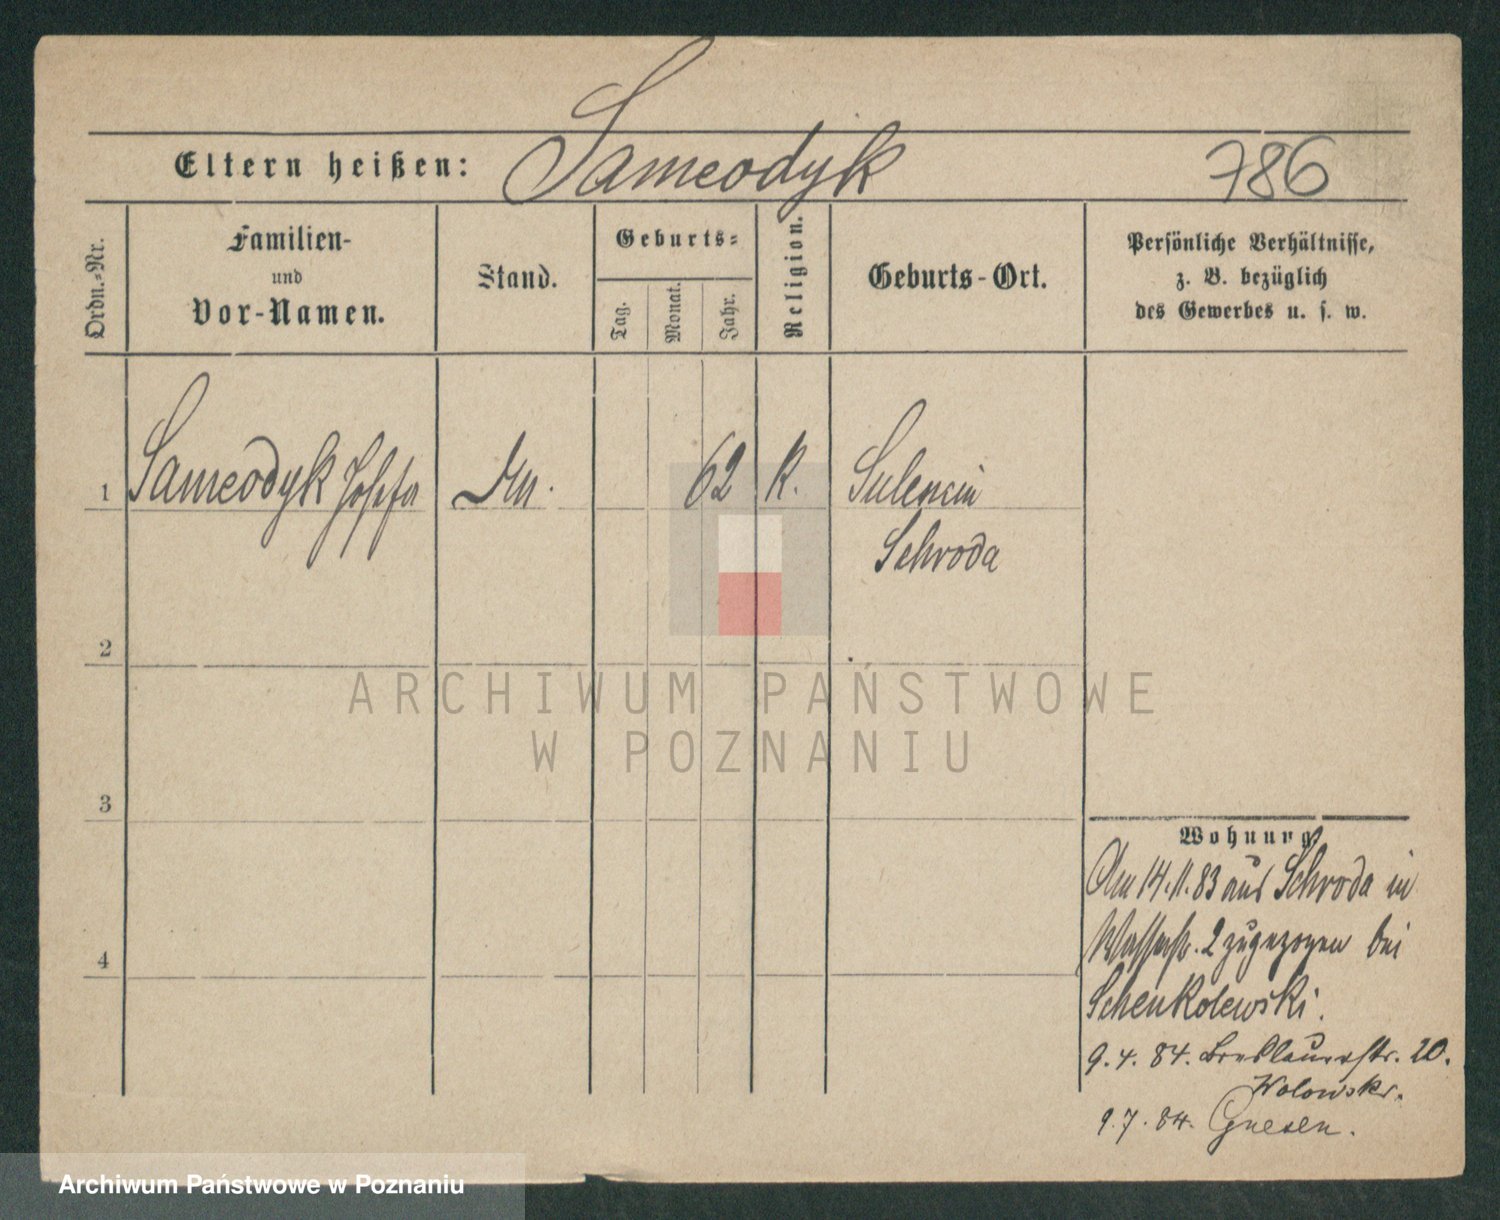 Eltern heißen: Sameodyk 786
Ordn.-Nr.
Familien-
und
Vor-Namen.
Stand.
Geburts-
Tag.
Monat.
Jahr.
Religion.
Geburts-Ort.
Persönliche Verhältnisse,
z. B. bezüglich
des Gewerbes u. s. w.
1 Sameodyk Josefa 62 K. Sulencin
Schroda
2
3
4
Wohnung
Am 14.11.83 aus Schroda in
Wasserstr. 2 zugezogen bei
Schenkolewski.
9.4.84. Breslauerstr. 20.
Wolowski.
9.7.84. Gnesen.
ARCHIWUM PAŃSTWOWE
W POZNANIU
Archiwum Państwowe w Poznaniu